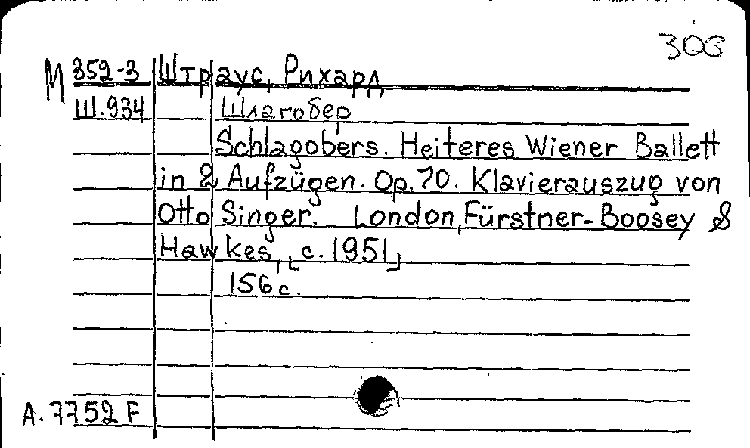 306
М 352-3 Штраус, Рихард
Ш.934 Шлагобер
Schlagobers. Heiteres Wiener Ballett
in 2 Aufzügen. Op.70. Klavierauszug von
Otto Singer. London, Fürstner-Boosey &
Hawkes, [c.1951]
156 с.
A.7752 F